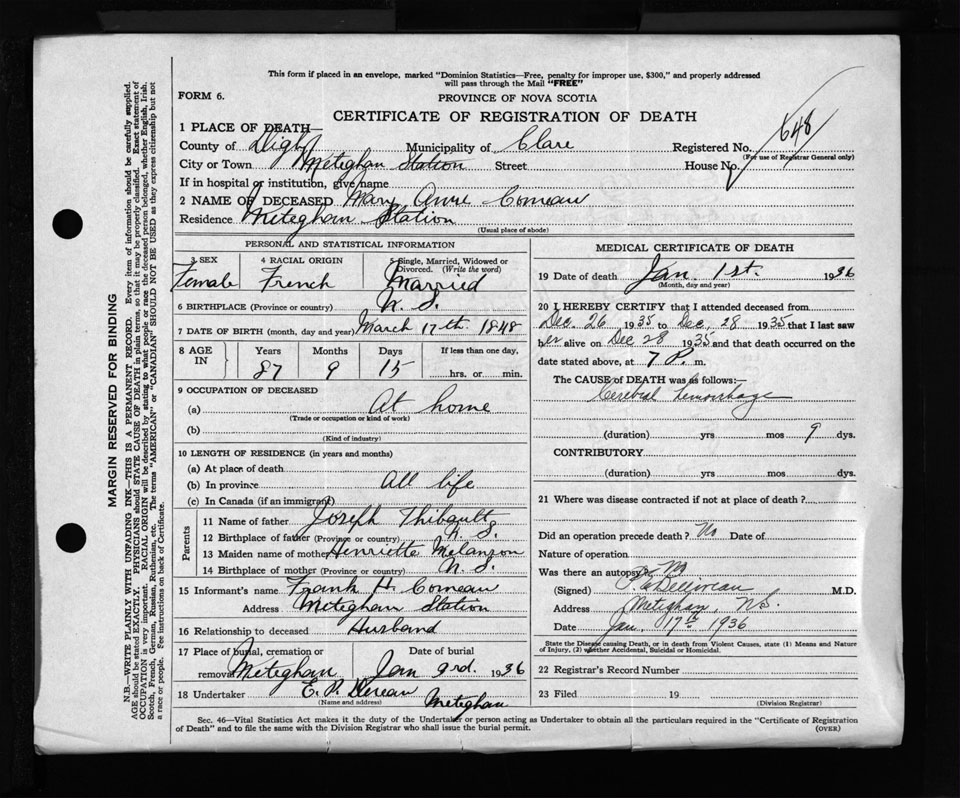 This form if placed in an envelope, marked "Dominion Statistics—Free, penalty for improper use, $300," and properly addressed
will pass through the Mail "FREE"
FORM 6.
PROVINCE OF NOVA SCOTIA
CERTIFICATE OF REGISTRATION OF DEATH
648
1 PLACE OF DEATH—
County of Digby Municipality of Clare Registered No.
(For use of Registrar General only)
City or Town Meteghan Station Street House No.
If in hospital or institution, give name
2 NAME OF DECEASED Mary Anne Comeau
Residence Meteghan Station
(Usual place of abode)
PERSONAL AND STATISTICAL INFORMATION
3 SEX 4 RACIAL ORIGIN 5 Single, Married, Widowed or
Divorced. (Write the word)
Female French Married
6 BIRTHPLACE (Province or country) N. S.
7 DATE OF BIRTH (month, day and year) March 17th 1848
8 AGE IN Years Months Days If less than one day,
87 9 15 hrs. or min.
9 OCCUPATION OF DECEASED
(a) At home
(Trade or occupation or kind of work)
(b)
(Kind of industry)
10 LENGTH OF RESIDENCE (in years and months)
(a) At place of death
(b) In province All life
(c) In Canada (if an immigrant)
Parents
11 Name of father Joseph Thibault
12 Birthplace of father (Province or country) N. S.
13 Maiden name of mother Henriette Melanson
14 Birthplace of mother (Province or country) N. S.
15 Informant's name Frank H. Comeau
Address Meteghan Station
16 Relationship to deceased Husband
17 Place of burial, cremation or Date of burial
removal Meteghan Jan 3rd. 1936
18 Undertaker E. P.
(Name and address) Meteghan
MEDICAL CERTIFICATE OF DEATH
19 Date of death Jan. 1st. 1936
(Month, day and year)
20 I HEREBY CERTIFY that I attended deceased from
Dec. 26 1935 to Dec, 28 1935 that I last saw
her alive on Dec 28 1935 and that death occurred on the
date stated above, at 7 P. m.
The CAUSE of DEATH was as follows:—
Cerebral hemorrhage
(duration) yrs mos 9 dys.
CONTRIBUTORY
(duration) yrs mos dys.
21 Where was disease contracted if not at place of death?
Did an operation precede death? No Date of
Nature of operation
Was there an autopsy? No
(Signed) Belliveau M.D.
Address Meteghan, N.S.
Date Jan. 17th 1936
State the Disease causing Death, or in death from Violent Causes, state (1) Means and Nature
of Injury, (2) whether Accidental, Suicidal or Homicidal.
22 Registrar's Record Number
23 Filed 19
(Division Registrar)
Sec. 46—Vital Statistics Act makes it the duty of the Undertaker or person acting as Undertaker to obtain all the particulars required in the "Certificate of Registration
of Death" and to file the same with the Division Registrar who shall issue the burial permit.
(OVER)
MARGIN RESERVED FOR BINDING
N.B.—WRITE PLAINLY WITH UNFADING INK—THIS IS A PERMANENT RECORD. Every item of information should be carefully supplied.
AGE should be stated EXACTLY. PHYSICIANS should STATE CAUSE OF DEATH in plain terms, so that it may be properly classified. Exact statement of
OCCUPATION is very important. RACIAL ORIGIN will be described by stating to what people or race the deceased person belonged, whether English, Irish,
Scotch, French, German, Russian, Ruthenian, etc. The terms "AMERICAN" or "CANADIAN" SHOULD NOT BE USED as they express citizenship but not
a race or people. See instructions on back of Certificate.